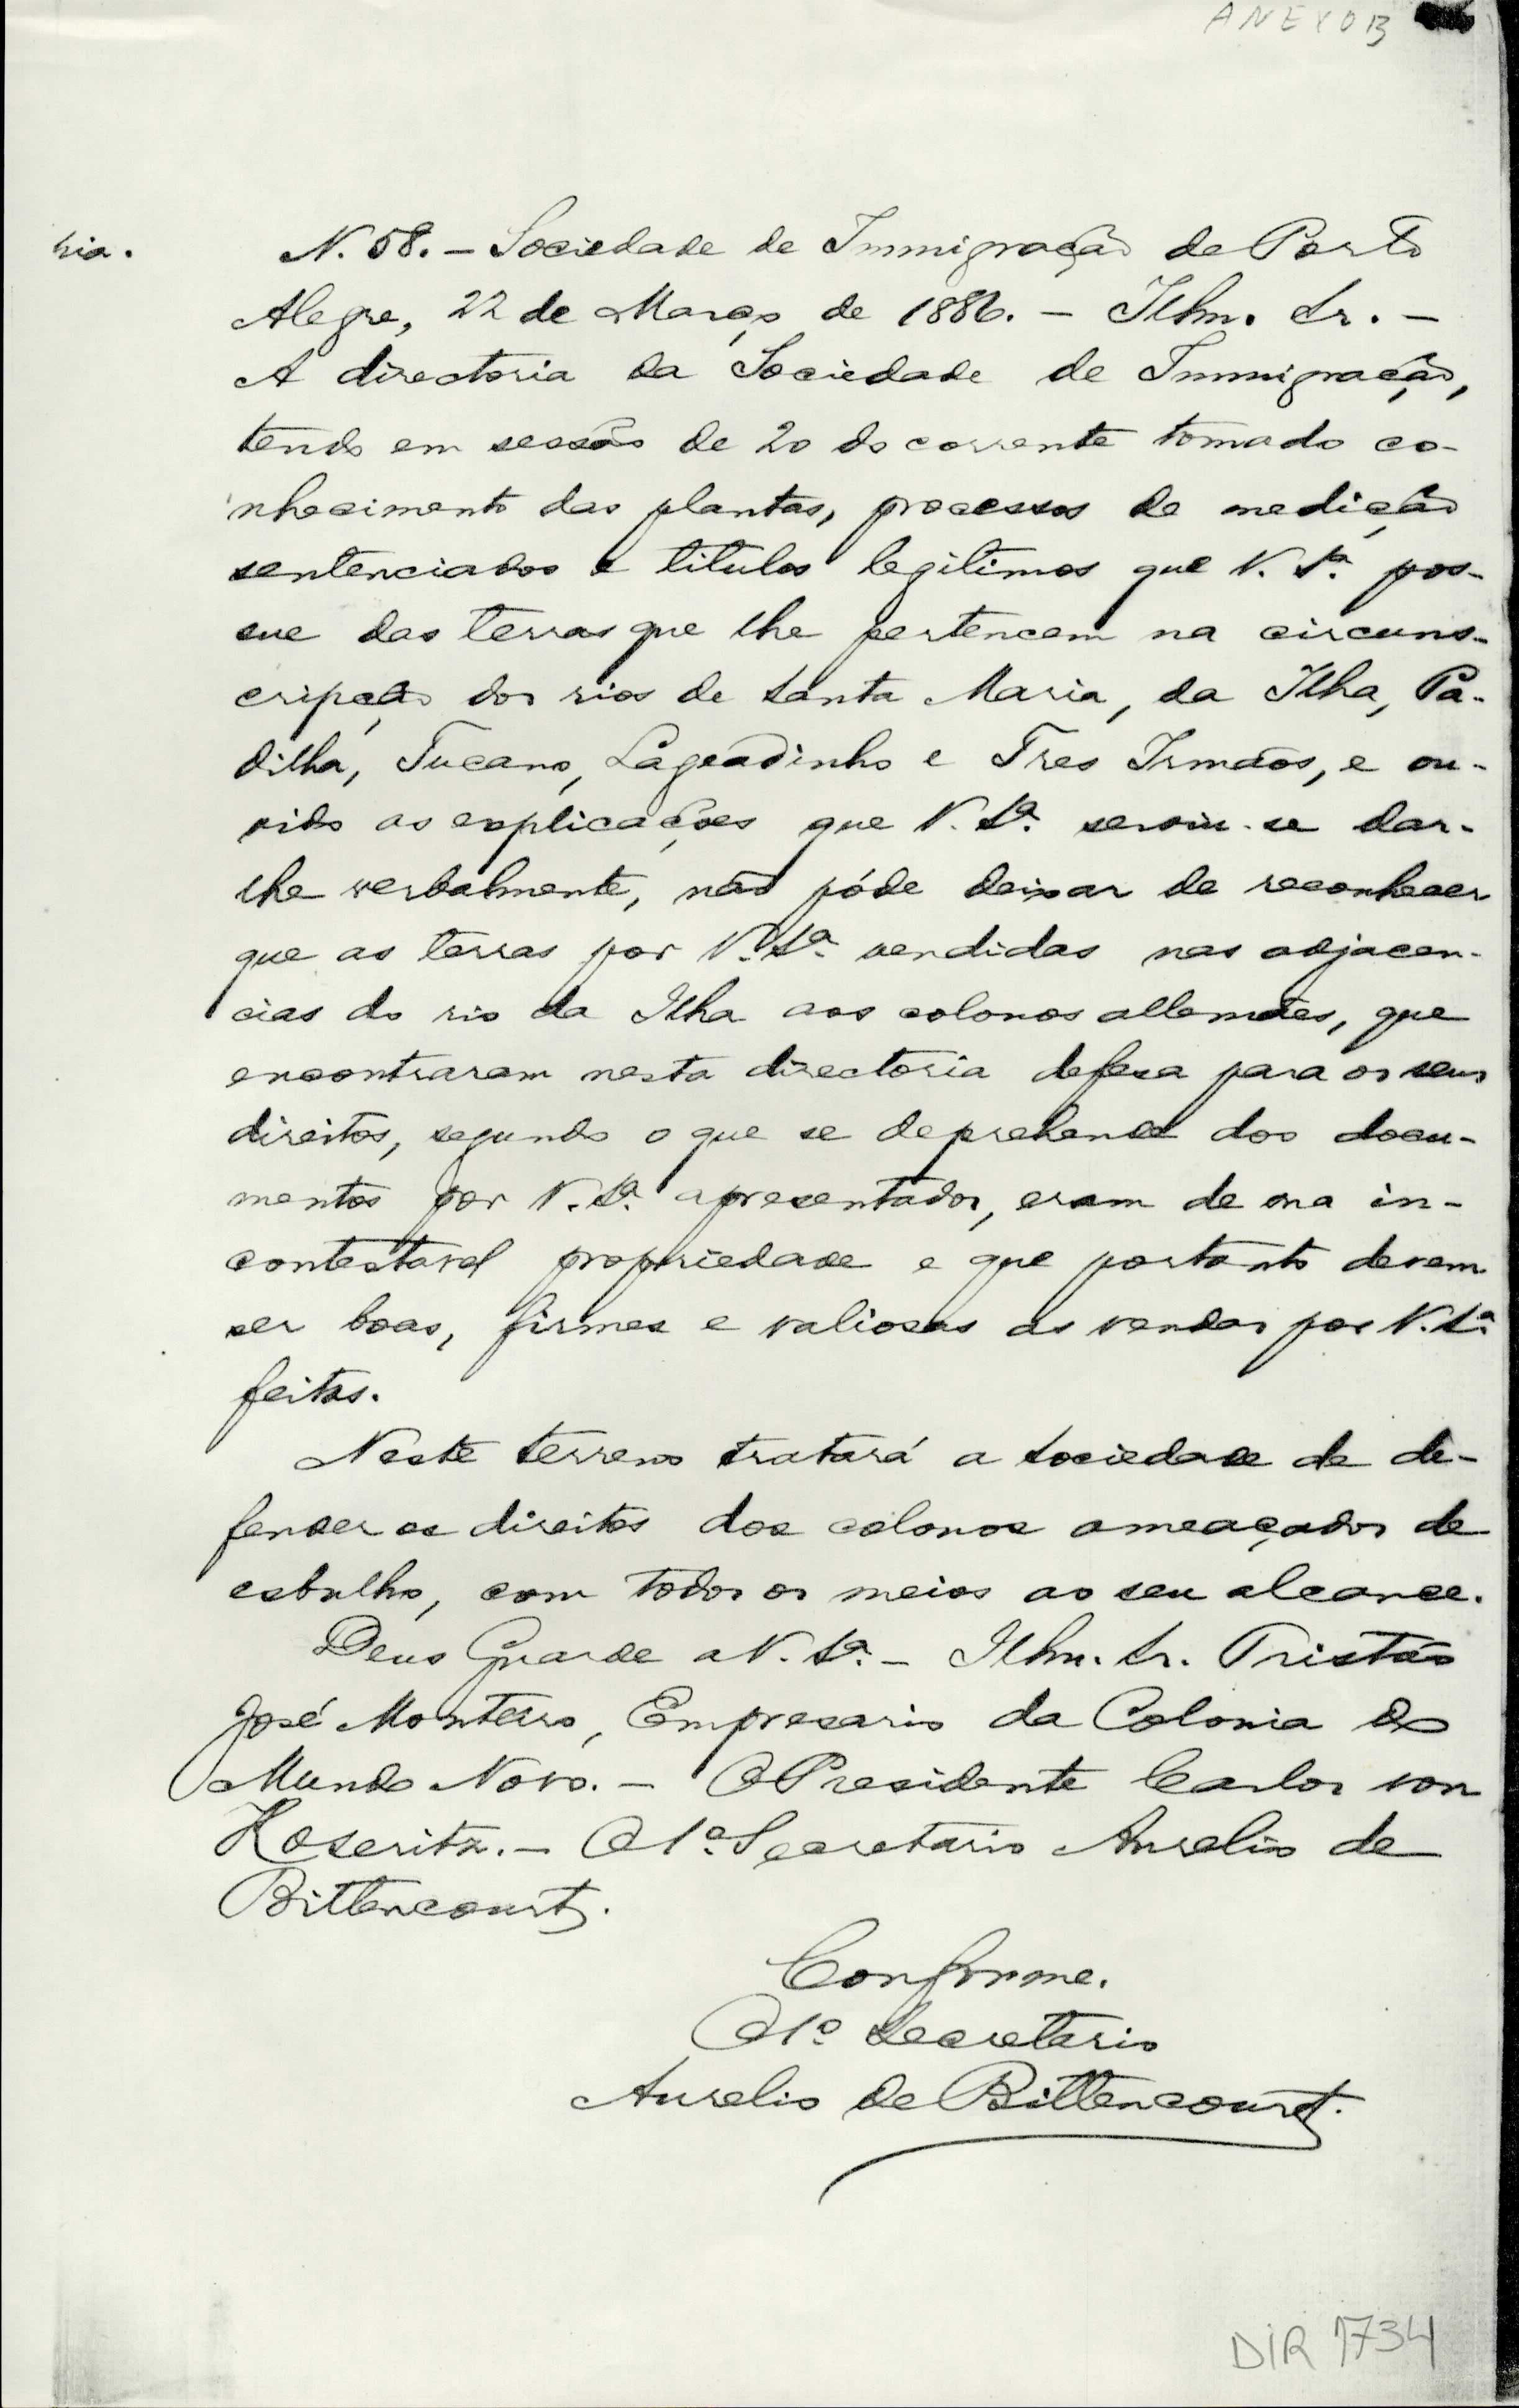 ANEXO B
pia.
N. 58. – Sociedade de Immigração de Porto
Alegre, 22 de Março de 1886. – Illm. Sr. –
A directoria da Sociedade de Immigração,
tendo em sessão de 20 do corrente tomado co-
nhecimento das plantas, processos de medição
sentenciados e titulos legitimos que V. Sª. pos-
sue das terras que lhe pertencem na circuns-
cripção dos rios de Santa Maria, da Ilha, Pa-
dilha, Tucano, Lageadinho e Tres Irmãos, e ou-
vido as explicações que V. Sª. serviu-se dar-
lhe verbalmente, não póde deixar de reconhecer
que as terras por V. Sª. vendidas nas adjacen-
cias do rio da Ilha aos colonos allemães, que
encontraram nesta directoria defesa para os seus
direitos, segundo o que se deprehende dos docu-
mentos por V. Sª. apresentados, eram de sua in-
contestavel propriedade e que portanto devem
ser boas, firmes e valiosas as vendas por V. Sª.
feitas.
Neste terreno tratará a Sociedade de de-
fender os direitos dos colonos ameaçados de
esbulho, com todos os meios ao seu alcance.
Deus Guarde a V. Sª. – Illm. Sr. Tristão
José Monteiro, Empresario da Colonia do
Mundo Novo. – O Presidente Carlos von
Koseritz. – O 1º Secretario Aurelio de
Bittencourt.
Conforme.
O 1º Secretario
Aurelio de Bittencourt.
DIR 1734